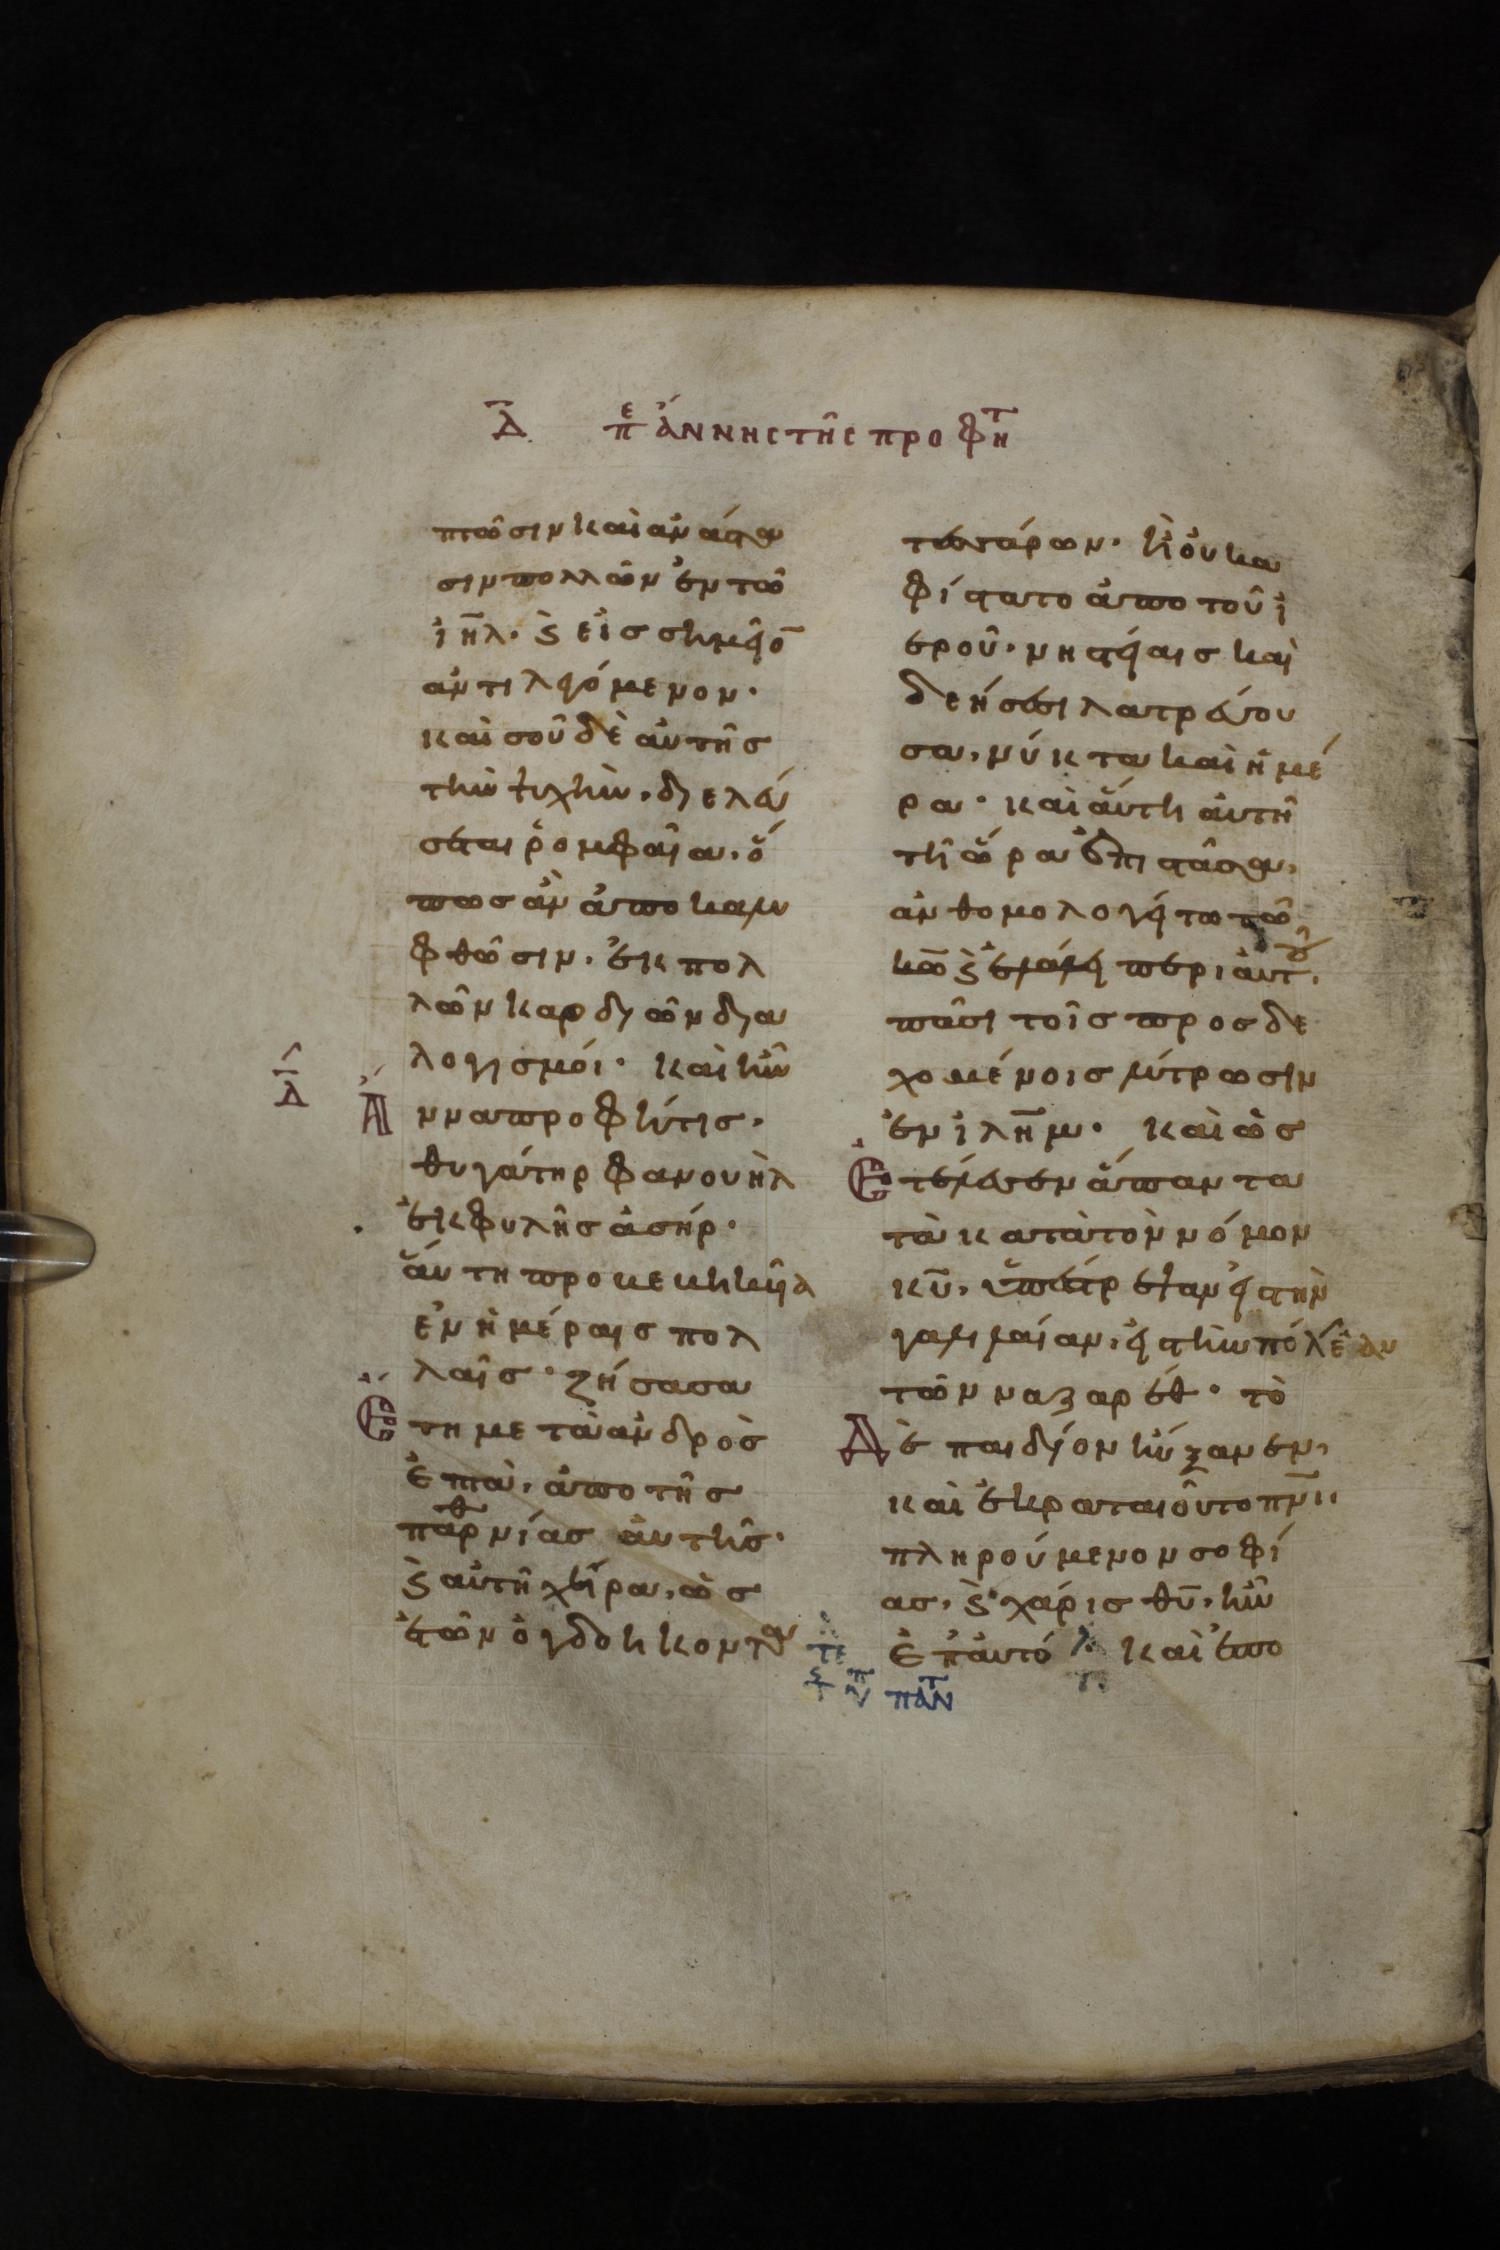 Δ̅ πε ἄννης τῆς προφητ
πτῶσιν καὶ ἀνάστα
σιν πολλῶν ἐν τῶ
ἰη̅λ. ϗ εἰς σημεῖο̅
ἀντιλεγόμενον.
καὶ σοῦ δὲ αὐτῆς
τὴν ψυχὴν. διελεύ
σεται ῥομφαῖα. ὅ
πως ἂν ἀποκαλυ
φθῶσιν. ἐκ πολ
λῶν καρδιῶν δια
λογισμόι. καὶ ἦν
Δ̅
Ἄννα προφῆτις.
θυγάτηρ φανουὴλ
ἐκ φυλῆς ἀσήρ.
ἅυτη προκεκηκῦια
ἐν ἡμέραις πολ
λαῖς. ζήσασα
Ἔτη μετὰ ἀνδρὸς
ἑπτὰ. ἀπο τῆς
παρθνίας αὐτῆς.
ϗ αὐτὴ χήρα. ὡς
ἐτῶν ὀγδοηκοντα
τεσσάρων. ἣ οὐκ α
φίστατο ἀπο τοῦ ἱ
εροῦ. νηστείαις καὶ
δεήσεσι λατρέυου
σα. νύκτα καὶ ἡμέ
ρα. καὶ ἅυτη αὐτῆ
τῆ ὥρα ἐπιστᾶσα.
ἀνθομολογεῖτο τῶ
κ̅ω̅ ϗ ἐλάλει περι ἀυτοῦ.
πᾶσι τοῖς προσδε
χομένοις λύτρωσιν
ἐν ἰλη̅μ. καὶ ὡς
Ἐτέλεσεν ἅπαντα
τὰ κατὰ τὸν νόμον
κ̅υ̅. ὑπέστρεψαν εἰς τὴν
γαλιλαίαν. εἰς τὴν πόλιν ἑαυ
τῶν ναζαρέθ. τὸ
Δὲ παιδίον ἠύξανεν.
καὶ ἐκραταιοῦτο πν̅ι
πληρούμενον σοφί
ας. ϗ χάρις θ̅υ̅. ἦν
ἐπ ἀυτό καὶ ἐπο
πᾶντ